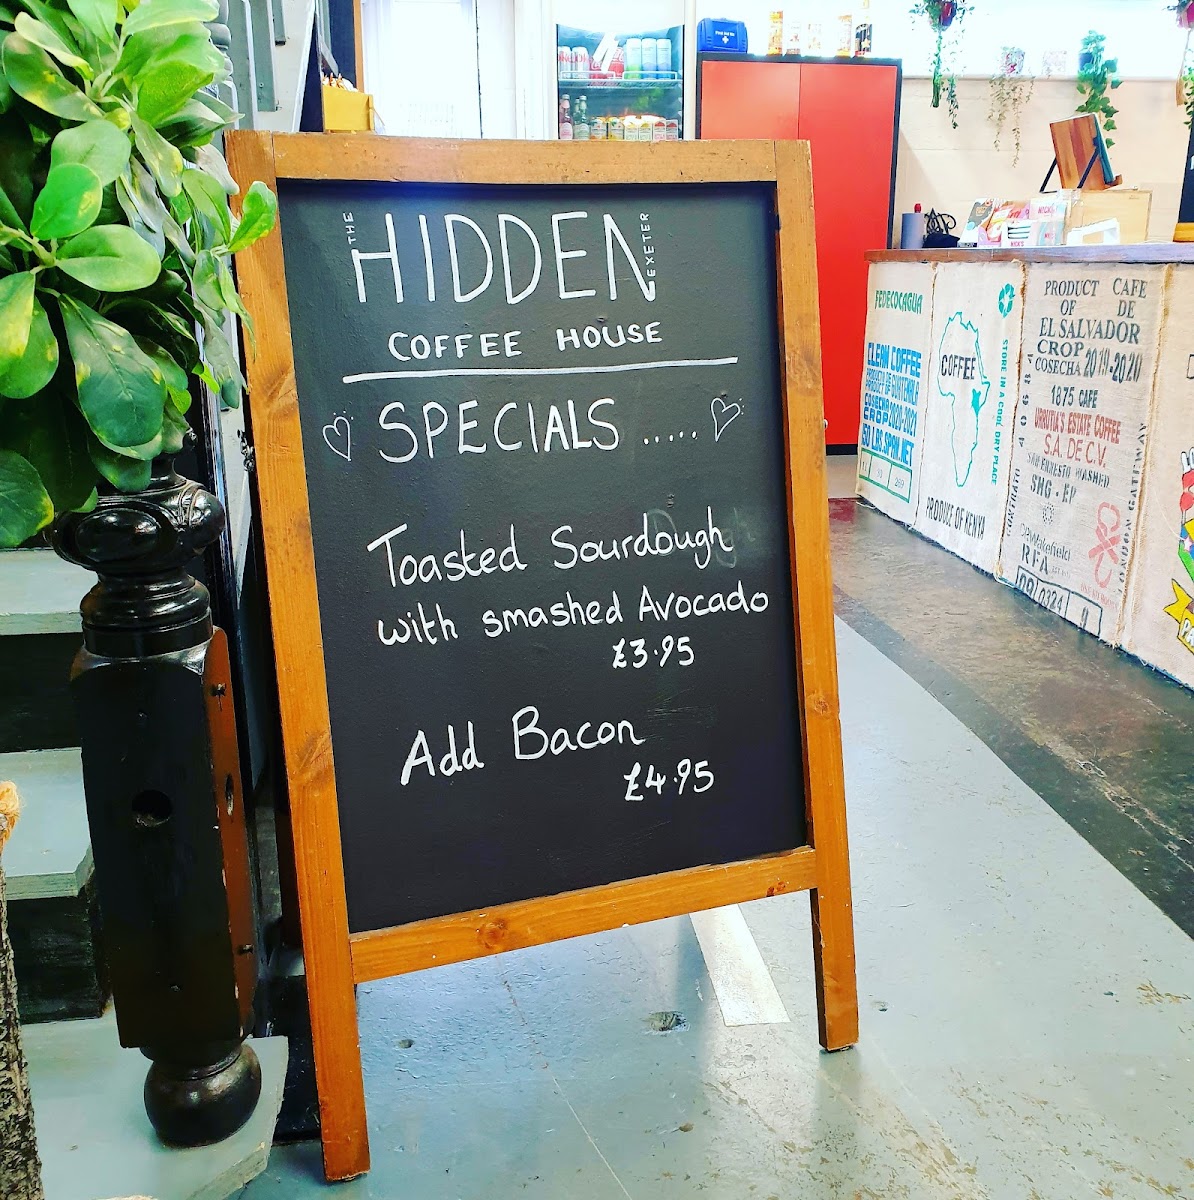 THE HIDDEN EXETER
COFFEE HOUSE
SPECIALS .....
Toasted Sourdough
with smashed Avocado
£3.95
Add Bacon
£4.95
FEDECOCAGUA
CLEAN COFFEE
PRODUCT OF GUATEMALA
COSECHA
CROP 2020-2021
COFFEE
STORE IN A COOL DRY PLACE
PRODUCE OF KENYA
PRODUCT CAFE
OF DE
EL SALVADOR
CROP
COSECHA 2019-2020
1875 CAFE
URRUTIA'S ESTATE COFFEE
S.A. DE C.V.
SAN ERNESTO WASHED
SHG - EP
RFA
LONDON GATEWAY
NICK'S